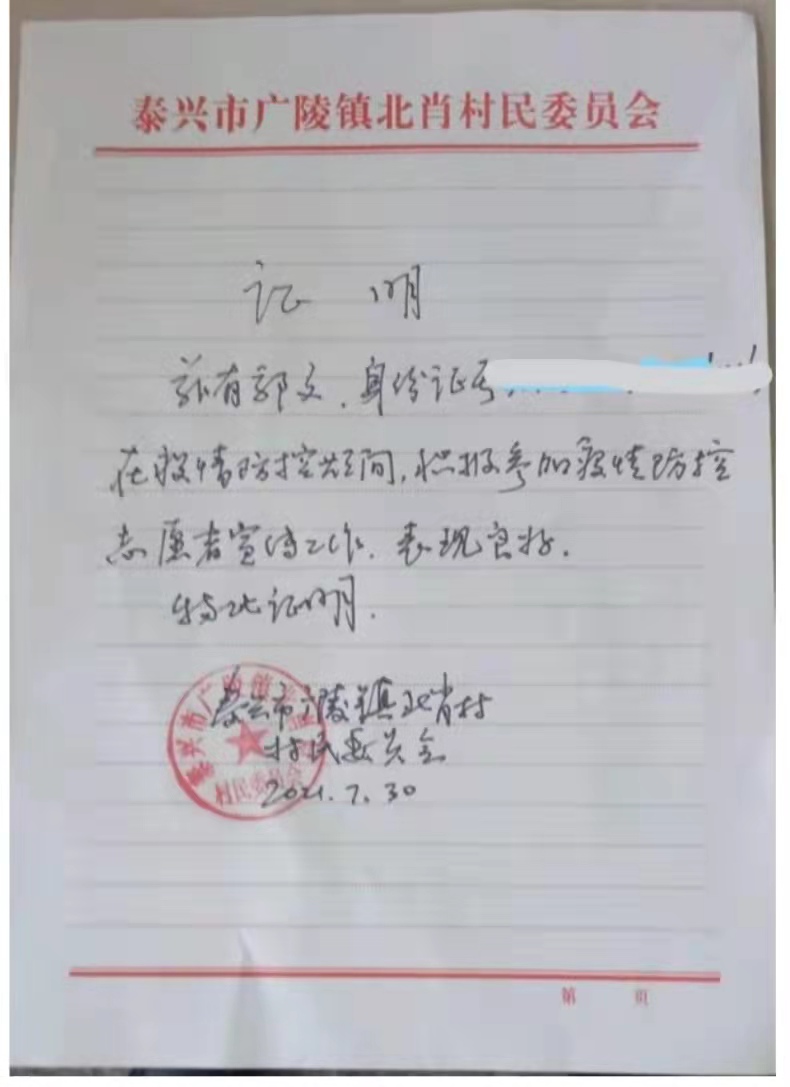 泰兴市广陵镇北肖村民委员会
证 明
兹有郭文，身份证号
在疫情防控期间，积极参加疫情防控
志愿者宣传工作，表现良好。
特此证明。
泰兴市广陵镇北肖村
村民委员会
2021.7.30
泰兴市广陵镇北肖
村民委员会
第 页